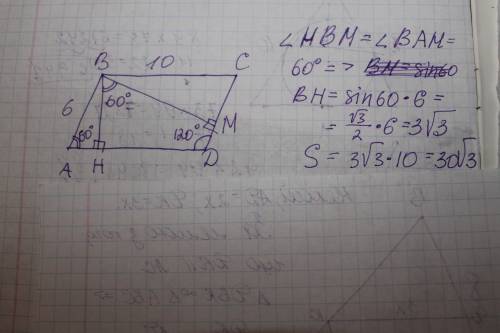 B 10 C
6
60°
60°
120°
M
A H D
∠HBM = ∠BAM =
60° => BH = sin60
BH = sin60 · 6 =
= √3/2 · 6 = 3√3
S = 3√3 · 10 = 30√3